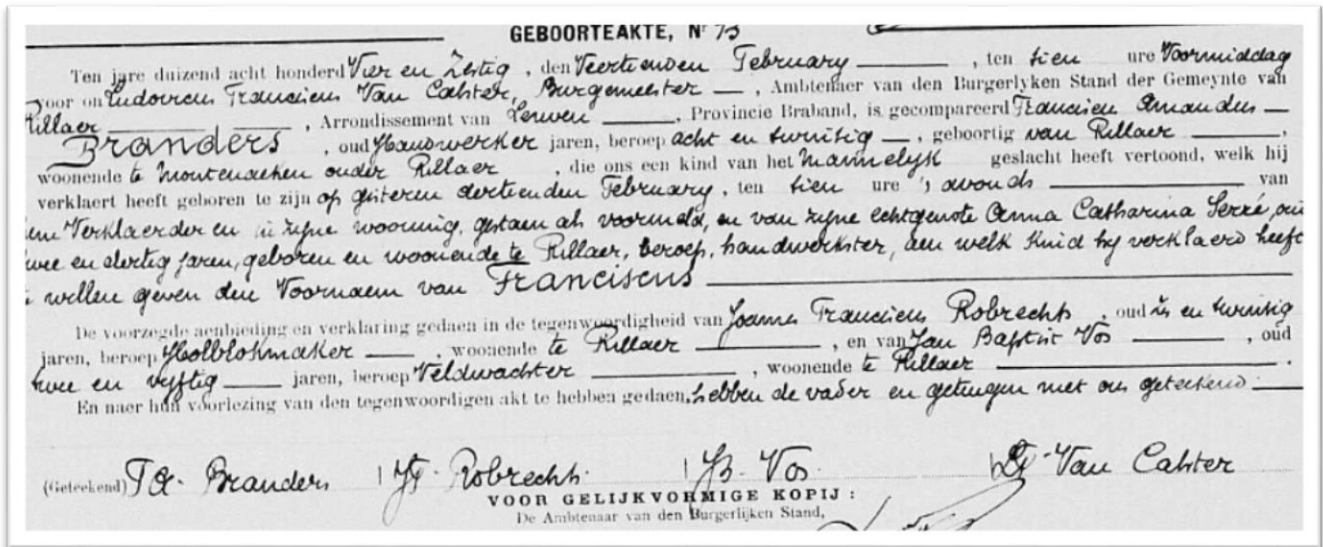 GEBOORTEAKTE, Nr 73
Ten jare duizend acht honderd Vier en Zestig, den Veertienden February, ten tien ure Voormiddag
voor on Ludovicus Franciscus Van Calster, Burgemeester, Ambtenaer van den Burgerlyken Stand der Gemeynte van
Rillaer, Arrondissement van Leuven, Provincie Braband, is gecompareerd Francicu Amandus
Branders, oud Handwerker jaren, beroep acht en twintig, geboortig van Rillaer,
woonende te Montenaeken onder Rillaer, die ons een kind van het Mannelyk geslacht heeft vertoond, welk hij
verklaert heeft geboren te zijn op gisteren dertienden February, ten tien ure 's avonds van
hem Verklaerder en in zyne wooning, gestaen als voormeld, en van zyne echtgenote Anna Catharina Serré, oud
twee en dertig jaren, geboren en woonende te Rillaer, beroep, handwerkster, aen welk kind hy verklaerd heeft
te willen geven den Voornaem van Franciscus
De voorzegde aenbieding en verklaring gedaen in de tegenwoordigheid van Joannes Franciscus Robrechts, oud en twintig
jaren, beroep Holblokmaker, woonende te Rillaer, en van Jan Baptist Vos, oud
twee en vyftig jaren, beroep Veldwachter, woonende te Rillaer.
En naer hun voorlezing van den tegenwoordigen akt te hebben gedaen, hebben de vader en getuigen met ons geteekend:
(Geteekend) F.A. Branders J.F. Robrechts J.B. Vos L.F. Van Calster
VOOR GELIJKVORMIGE KOPIJ :
De Ambtenaar van den Burgerlijken Stand,